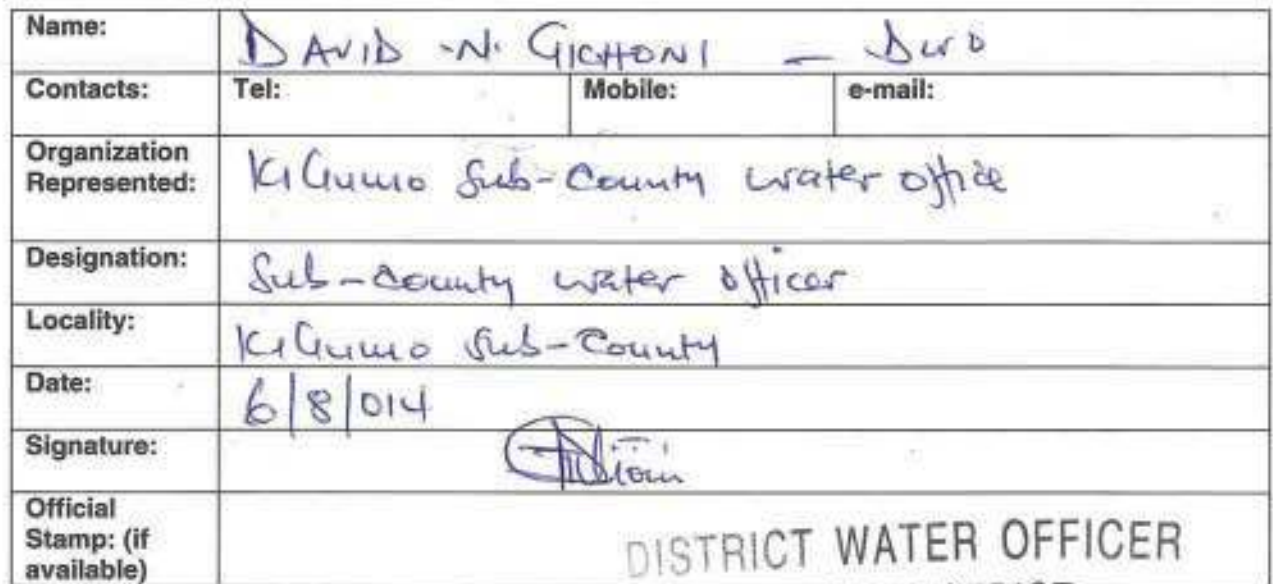 Name: DAVID .N. GICHONI – DWO
Contacts: Tel: Mobile: e-mail:
Organization
Represented: KiGumo Sub-County water office
Designation: Sub-County water officer
Locality: KiGumo Sub-County
Date: 6/8/014
Signature:
Official
Stamp: (if
available)
DISTRICT WATER OFFICER